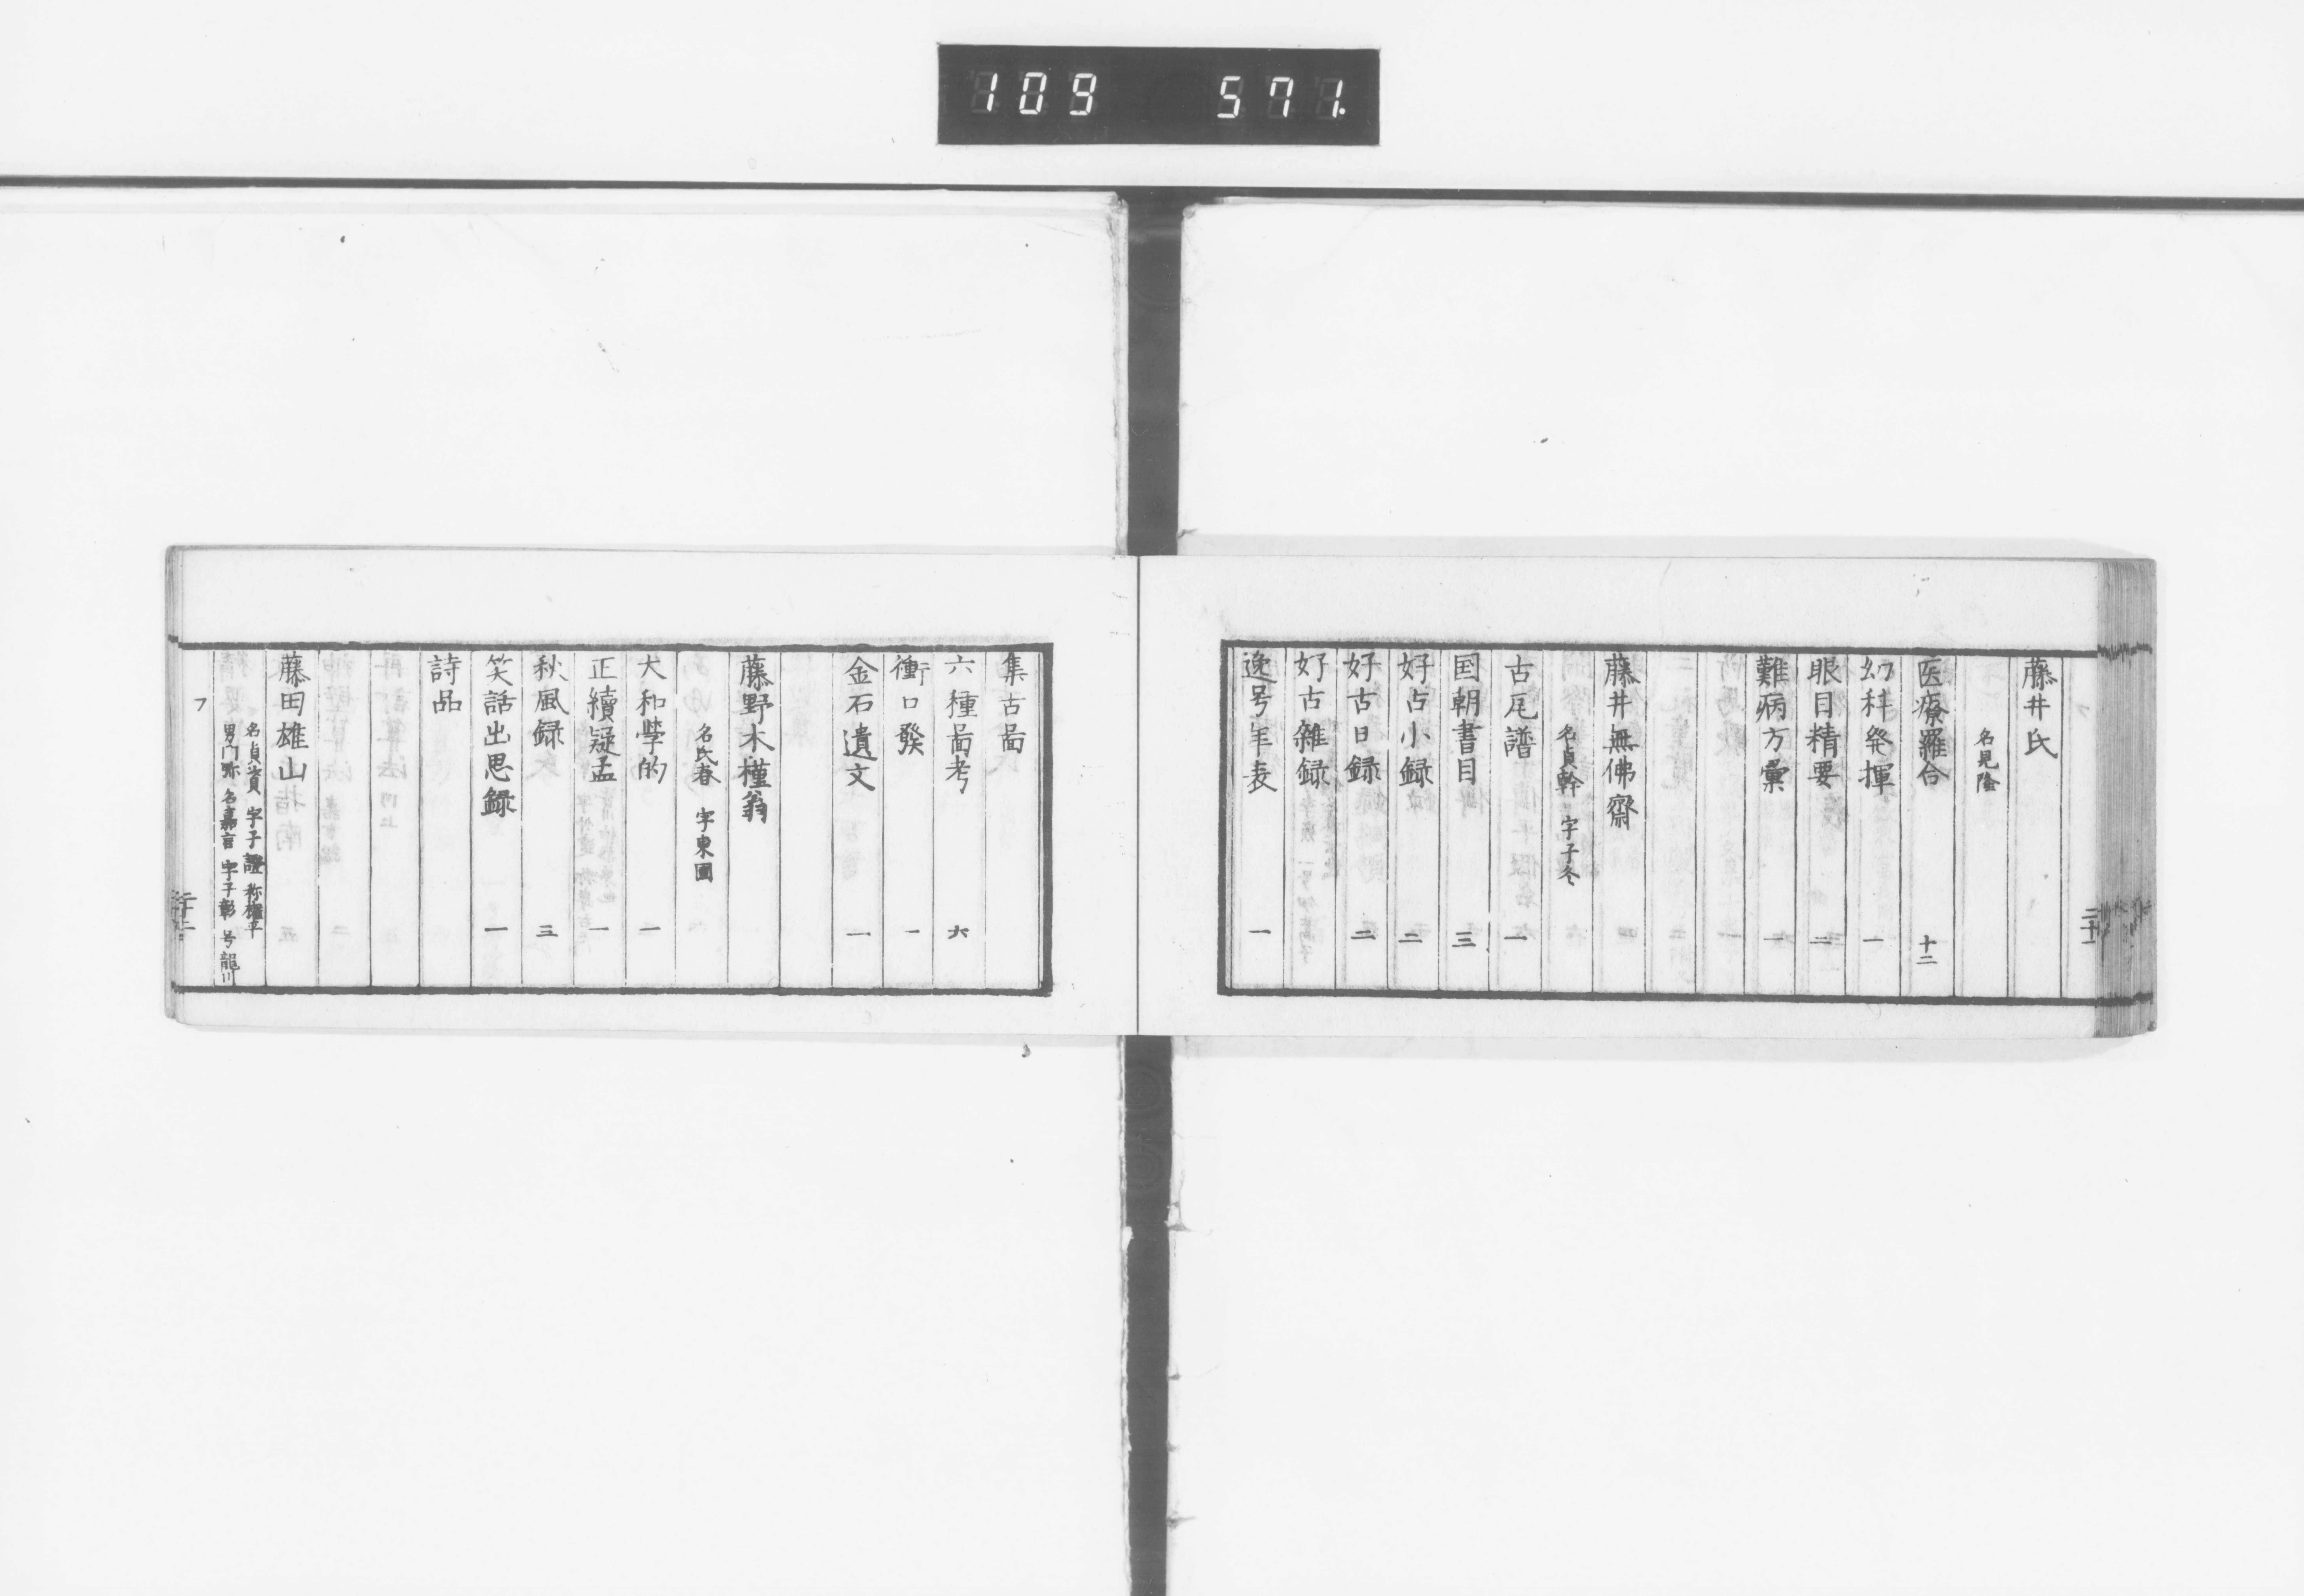 109 571.
藤井氏
名見隆
医療羅合 十二
幼科発揮 一
眼目精要 二
難病方彙 一
藤井無佛齋
名貞幹 字子冬
古瓦譜 一
国朝書目 三
好古小録 二
好古日録 二
好古雜録
逸号年表 一
集古啚
六種啚考 六
衝口發 一
金石遺文 一
藤野木槿翁
名氏春 字東國
大和学的 一
正續疑孟 一
秋風録 三
笑話出思録 一
詩品
藤田雄山
名貞資 字子證 称權平
男 名嘉言 字子彰 号龍川
フ